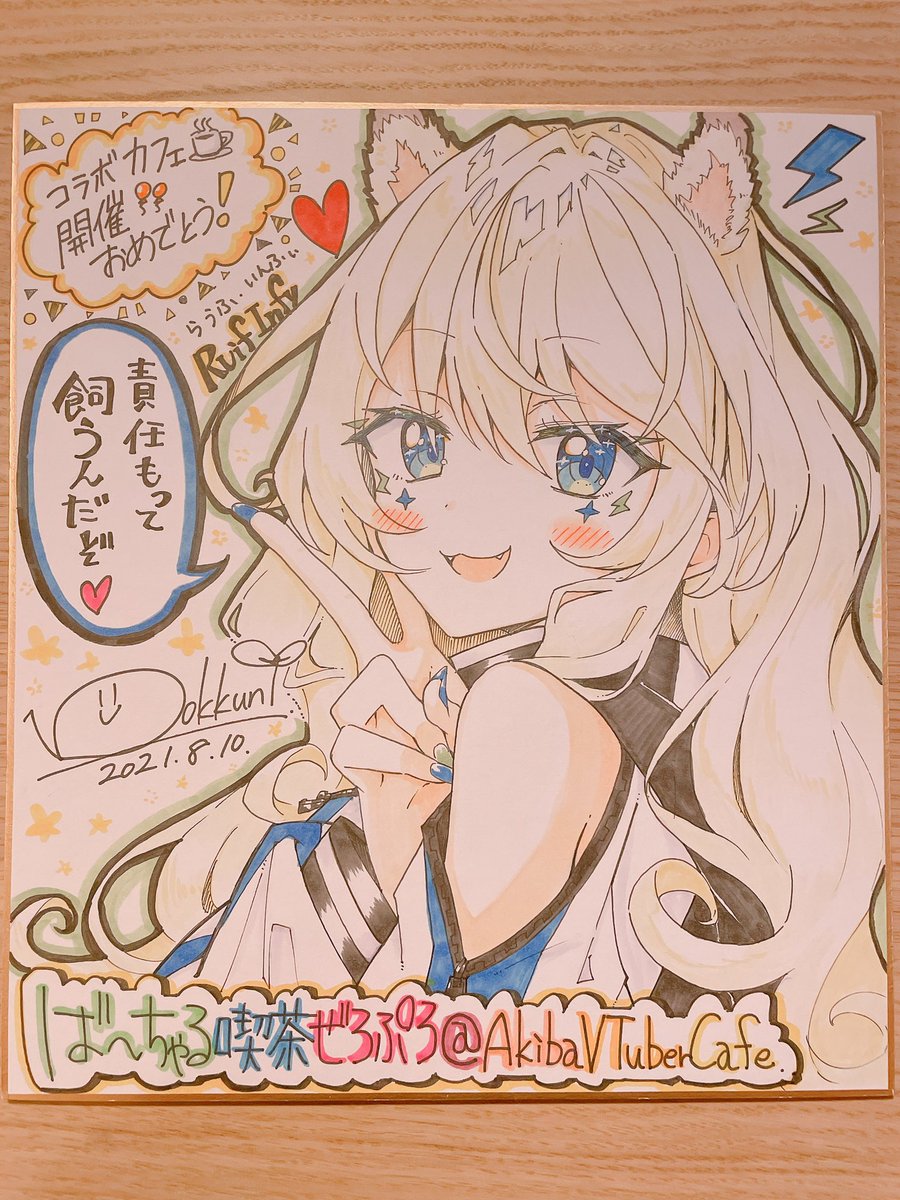 コラボカフェ
開催
おめでとう!
らうふぃいんふぃ
Ruif Infy
責任もって
飼うんだぞ
Dokkuni
2021.8.10.
ばーちゃる喫茶ぜろぷろ@AkibaVTuberCafe.